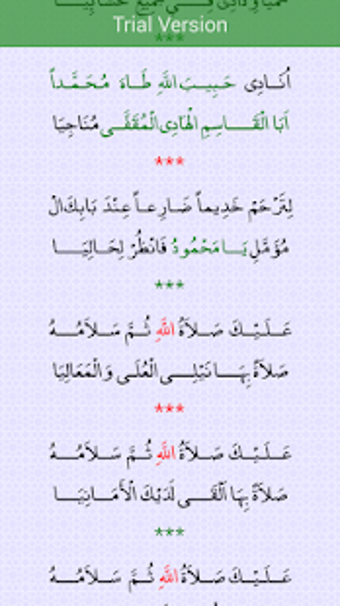 Trial Version
***
أُنَادِى حَبِيبَ اللَّهِ طَاهَ مُحَمَّداً
أَبَا الْقَـاسِمِ الْهَادِى الْمُقَفَّـى مُنَاجِيَا
***
لِتَرْحَمْ خَدِيماً ضَارِعاً عِنْدَ بَابِكَ الْ
مُؤَمَّلِ يَـا مَحْمُودُ فَانْظُرْ لِحَالِيَـا
***
عَـلَـيْـكَ صَـلَاةُ اللَّهِ ثُـمَّ سَـلَامُـهُ
صَلَاةً بِهَـا نَيْلِـى الْعُلَـى وَالْمَعَالِيَا
***
عَـلَـيْـكَ صَـلَاةُ اللَّهِ ثُـمَّ سَـلَامُـهُ
صَلَاةً بِهَا أَلْقَـى لَدَيْكَ الْأَمَـانِيَـا
***
عَـلَـيْـكَ صَـلَاةُ اللَّهِ ثُـمَّ سَـلَامُـهُ